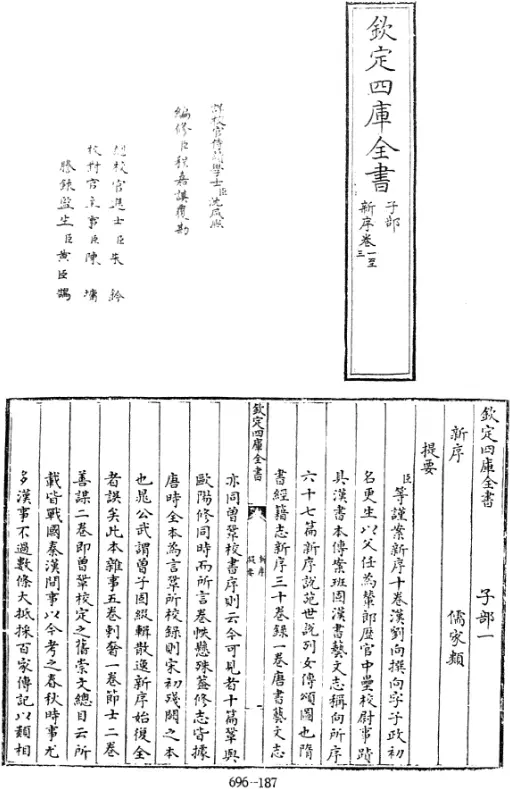 欽定四庫全書
子部
新序卷一至
三
詳校官侍讀學士臣沈咸熙
編修臣程嘉謨覆勘
總校官進士臣朱鈐
校對官主事臣陳墉
謄錄監生臣黃臣鵠
欽定四庫全書
子部一
新序
儒家類
提要
臣等謹案新序十卷漢劉向撰向字子政初
名更生以父任為輦郎歴官中壘校尉事蹟
具漢書本傳案班固漢書藝文志稱向所序
六十七篇新序説苑世説列女傳頌圖也隋
書經籍志新序三十卷錄一卷唐書藝文志
欽定四庫全書
新序
提要
一
亦同曾鞏校書序則云今可見者十篇鞏與
歐陽修同時而所言卷帙懸殊蓋修志皆據
唐時全本為言鞏所校錄則宋初殘闕之本
也晁公武謂曾子固綴輯散逸新序始復全
者誤矣此本雜事五卷刺奢一卷節士二卷
善謀二卷即曾鞏校定之舊崇文總目云所
載皆戰國秦漢間事以今考之春秋時事尤
多漢事不過數條大抵採百家傳記以類相
696-187